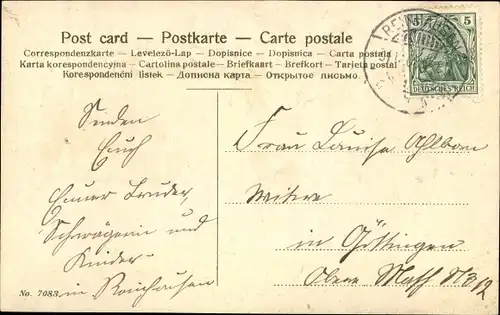 Post card — Postkarte — Carte postale
Correspondenzkarte — Levelező-Lap — Dopisnice — Dopisnica — Carta postala
Karta korespondencyjna — Cartolina postale — Briefkaart — Brefkort — Tarjeta postal
Korespondenční lístek — Дописна карта — Открытое письмо.
5
DEUTSCHES REICH
Senden
Euch
Euer Bruder,
Schwägerin und
Kinder
in Reinhausen
Frau Louise Ahlborn
Witwe
in Göttingen
Obere Masch No 12
No. 7083